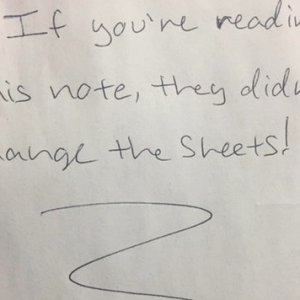 If you're readin
is note, they didn
ange the Sheets!